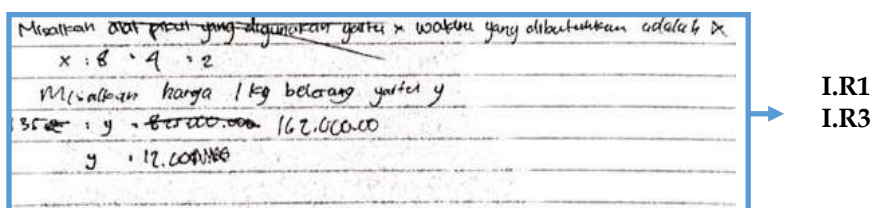 Misalkan alat pikul yang digunakan yaitu x waktu yang dibutuhkan adalah x
x : 8 · 4 · 2
Misalkan harga 1 kg belerang yaitu y
135 : y · 162.000.00
y · 12.00
I.R1
I.R3